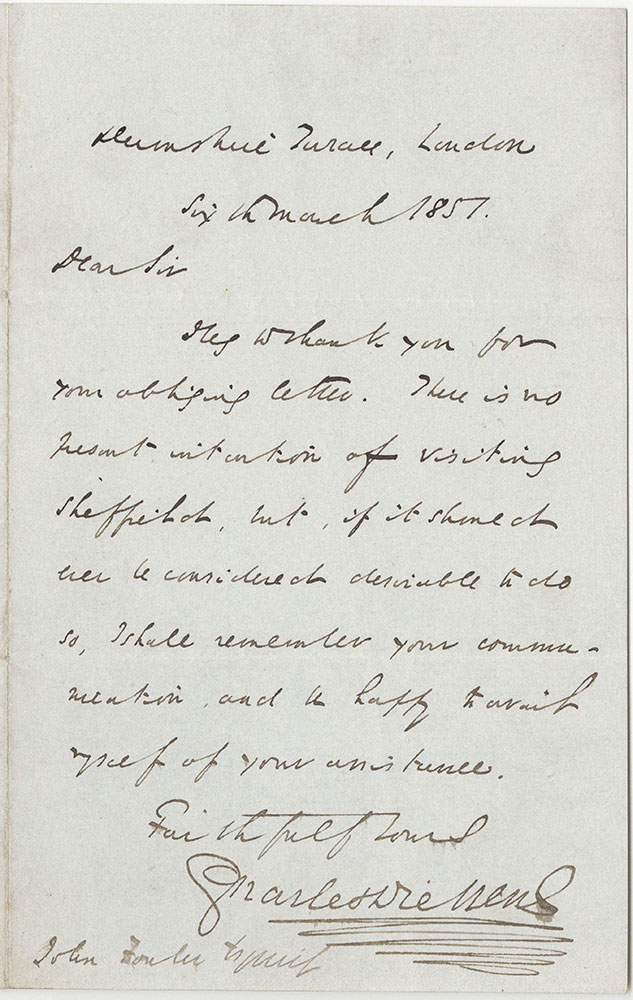 Devonshire Terrace, London
Sixth March 1851.
Dear Sir
I beg to thank you for
your obliging letter. There is no
present intention of visiting
Sheffield, but, if it should
ever be considered desirable to do
so, I shall remember your commu-
nication, and be happy to avail
myself of your assistance.
Faithfully Yours
Charles Dickens
John Fowler Esquire